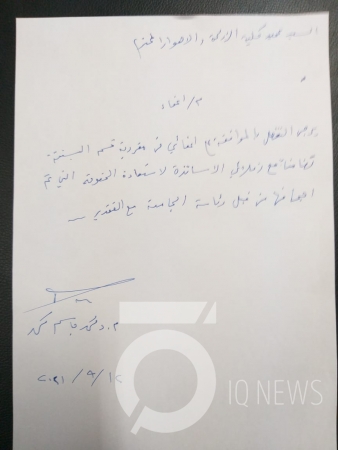 السيد عميد كلية الزراعة والاهوار المحترم
م/ اعفاء
يرجى التفضل بالموافقة على اعفائي من مقررية قسم البستنة
تضامنا مع زملائي الاساتذة لاستعادة الحقوق التي تم
من قبل رئاسة الجامعة مع التقدير
م.د محمد جاسم محمد
٢٠٢١ / ٩ / ١٢
IQ NEWS